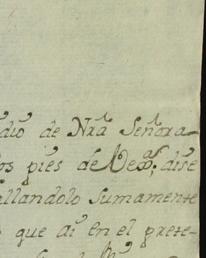 dio de Nrã Señora
os pies de Vexᵃ; dise
allandolo sumamente
que ai en el prete-